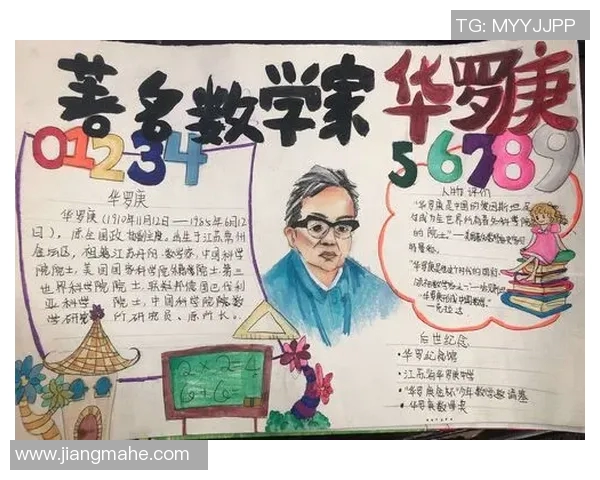 TG: MYYJJPP
著名数学家 华罗庚
01234
56789
华罗庚
华罗庚(1910年11月12日—1985年6月12
日),原全国政协副主席。出生于江苏常州
金坛区,祖籍江苏丹阳。数学家,中国科学
院院士,美国国家科学院外籍院士,第三
世界科学院院士,联邦德国巴伐利
亚科学院院士,中国科学院数
学研究所研究员、原所长。
2×2=4
6+6=
人物评价
"华罗庚是中国的爱因斯坦,足
够成为全世界所有著名科学院
的院士。"
后世纪念
·华罗庚纪念馆
·江苏省华罗庚中学
·"华罗庚金杯"少年数学邀请赛
·华罗庚数学奖
www.jiangmahe.com